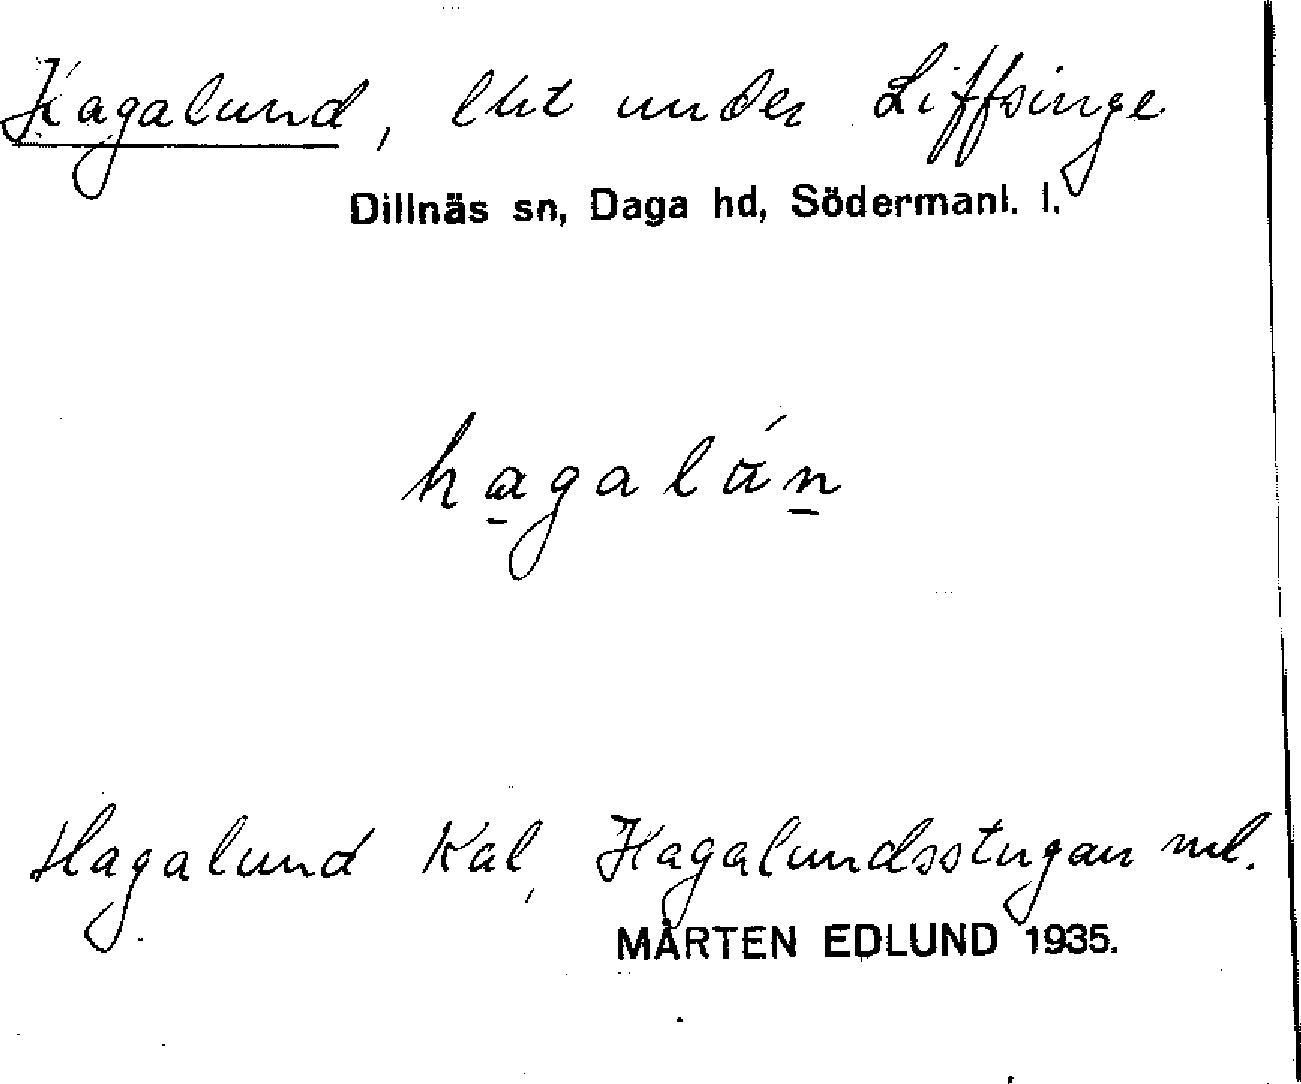 Hagalund, lht under Liffsinge
Dillnäs sn, Daga hd, Södermanl. l.
hagalún
Hagalund Kal, Hagalundsstugan ml.
MÅRTEN EDLUND 1935.